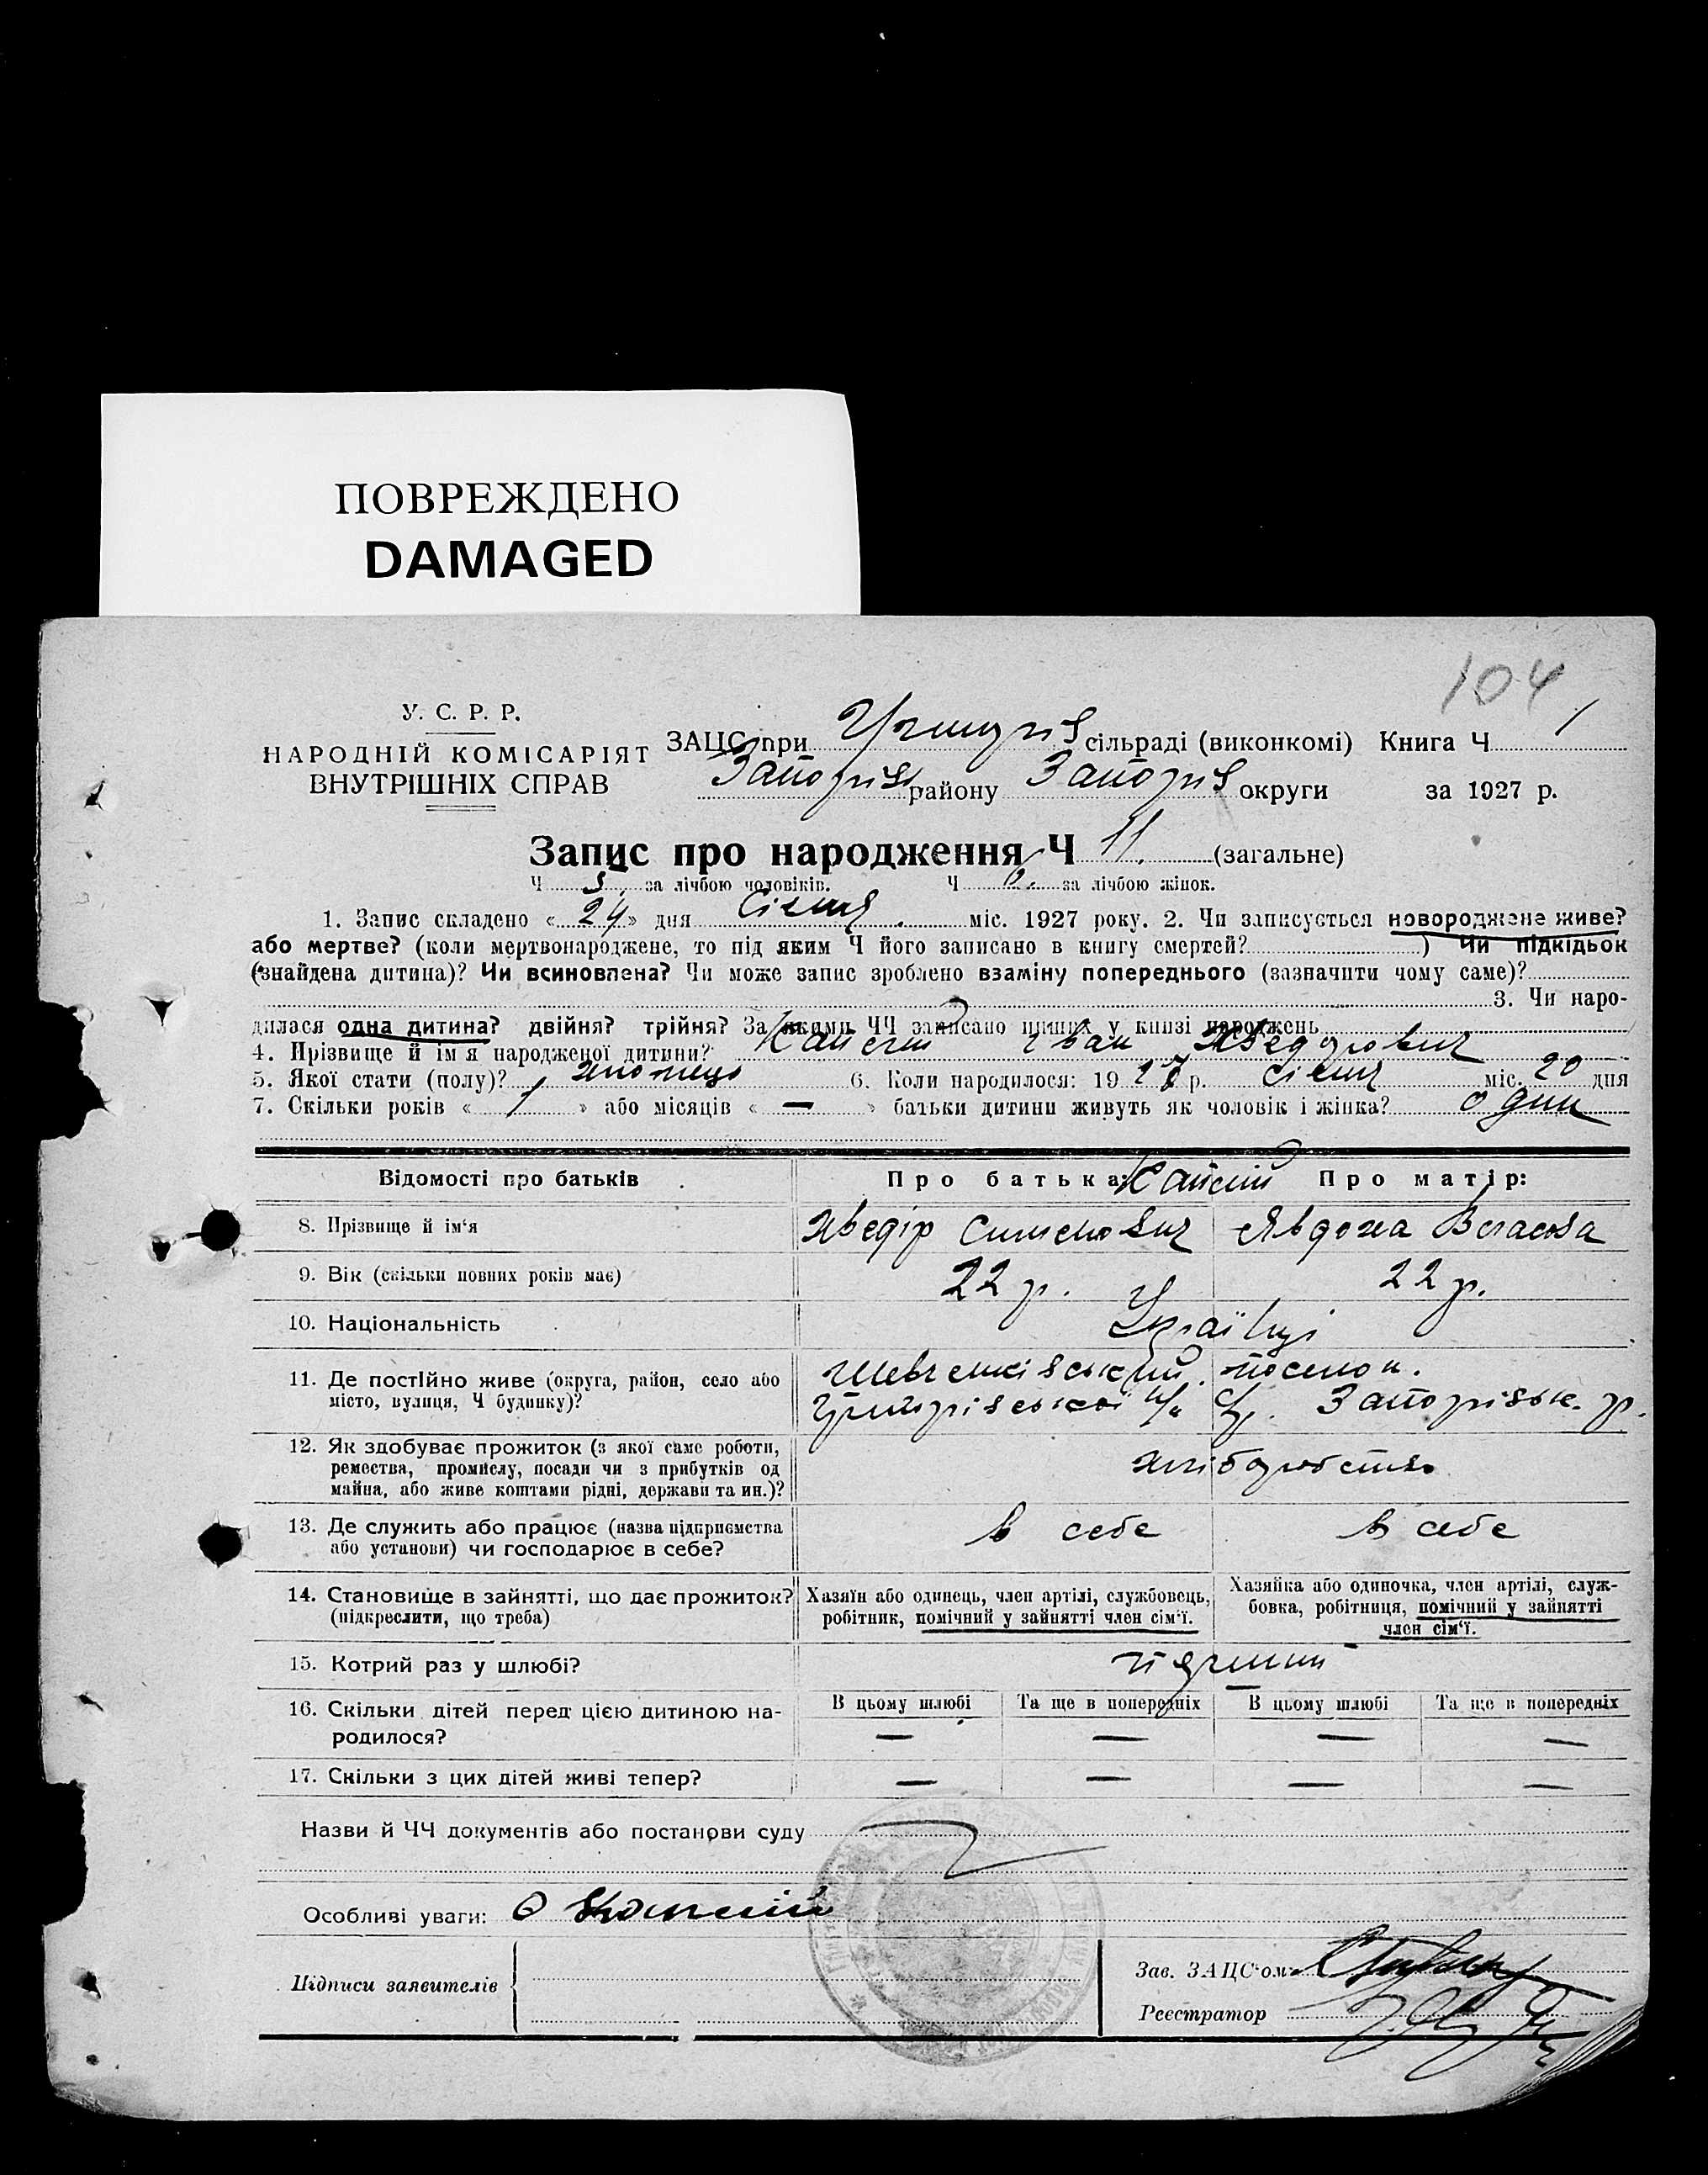 ПОВРЕЖДЕНО
DAMAGED
104
У. С. Р. Р.
НАРОДНІЙ КОМІСАРІЯТ
ВНУТРІШНІХ СПРАВ
ЗАЦС при сільраді (виконкомі) Книга Ч 1
Запоріз району Запоріз округи за 1927 р.
Запис про народження Ч 11. (загальне)
Ч 5 за лічбою чоловіків. Ч 6. за лічбою жінок.
1. Запис складено « 24 » дня Січня міс. 1927 року. 2. Чи записується новороджене живе?
або мертве? (коли мертвонароджене, то під яким Ч його записано в книгу смертей? ) Чи підкідьок
(знайдена дитина)? Чи всиновлена? Чи може запис зроблено взаміну попереднього (зазначити чому саме)?
3. Чи наро-
дилася одна дитина? двійня? трійня? За якими ЧЧ записано інших у книзі народжень
4. Прізвище й ім'я народженої дитини? Іван Хведорович
5. Якої стати (полу)? хлопець 6. Коли народилося: 1927 р. Січня міс. 20 дня
7. Скільки років « 1 » або місяців « — » батьки дитини живуть як чоловік і жінка? один
Відомості про батьків Про батька: Про матір:
8. Прізвище й ім'я Хведір Симонович Явдоха Власова
9. Вік (скільки повних років має) 22 р. 22 р.
10. Національність Українці
11. Де постійно живе (округа, район, село або Шевченківський поселок.
місто, вулиця, Ч будинку)? Запорізьк. р.
12. Як здобуває прожиток (з якої саме роботи,
ремества, промислу, посади чи з прибутків од
майна, або живе коштами рідні, держави та ин.)? хліборобство
13. Де служить або працює (назва підприємства
або установи) чи господарює в себе? в себе в себе
14. Становище в зайнятті, що дає прожиток? Хазяїн або одинець, член артілі, службовець, Хазяйка або одиночка, член артілі, служ-
(підкреслити, що треба) робітник, помічний у зайнятті член сім'ї. бовка, робітниця, помічний у зайнятті
член сім'ї.
15. Котрий раз у шлюбі? перший
16. Скільки дітей перед цією дитиною на- В цьому шлюбі Та ще в попередніх В цьому шлюбі Та ще в попередніх
родилося? — — — —
17. Скільки з цих дітей живі тепер? — — — —
Назви й ЧЧ документів або постанови суду
Особливі уваги:
Підписи заявителів Зав. ЗАЦС'ом
Реєстратор